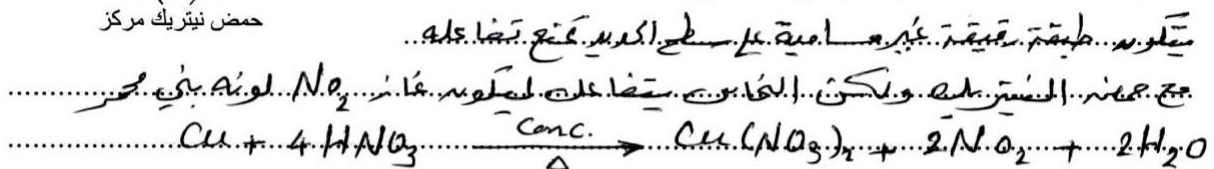 حمض نيتريك مركز
تتكون طبقة رقيقة غير مسامية على سطح الحديد تمنع تفاعله
مع حمض النيتريك ولكن النحاس يتفاعل ليتكون غاز NO₂ لونه بني محمر
Cu + 4HNO₃ —Conc. / Δ→ Cu(NO₃)₂ + 2NO₂ + 2H₂O